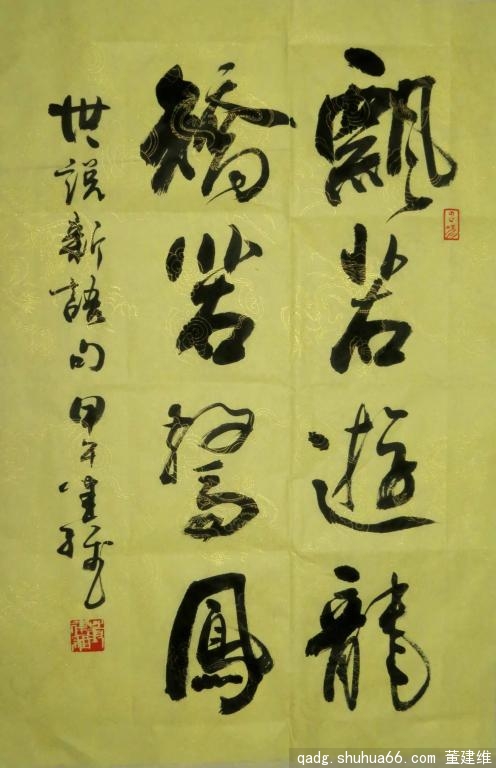 飄若遊龍
矯若驚鳳
世说新語句 甲午建維
qadg.shuhua66.com 董建维